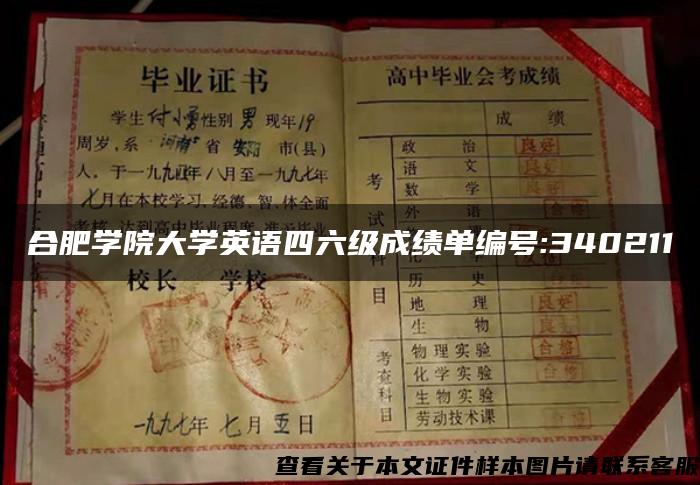 毕业证书
学生付小勇性别男现年19
周岁,系河南省安阳市(县)
人。于一九九四年八月至一九九七年
七月在本校学习,经德、智、体全面
考核,达到高中毕业程度,准予毕业
校长 学校
一九九七年七月五日
高中毕业会考成绩
成绩
考试科目
政治 良好
语文 良好
数学 良好
外语 合格
历史
地理 良好
生物 良好
考查科目
物理实验 合格
化学实验 合格
生物实验
劳动技术课 合格
合肥学院大学英语四六级成绩单编号:340211
查看关于本文证件样本图片请联系客服